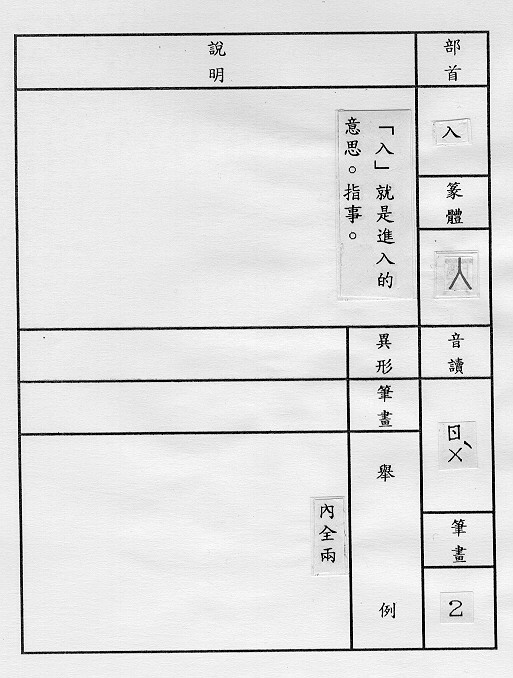 部首
入
篆體
人
音讀
ㄖㄨˋ
筆畫
2
說明
「入」就是進入的
意思。指事。
異形
筆畫
舉例
內全兩